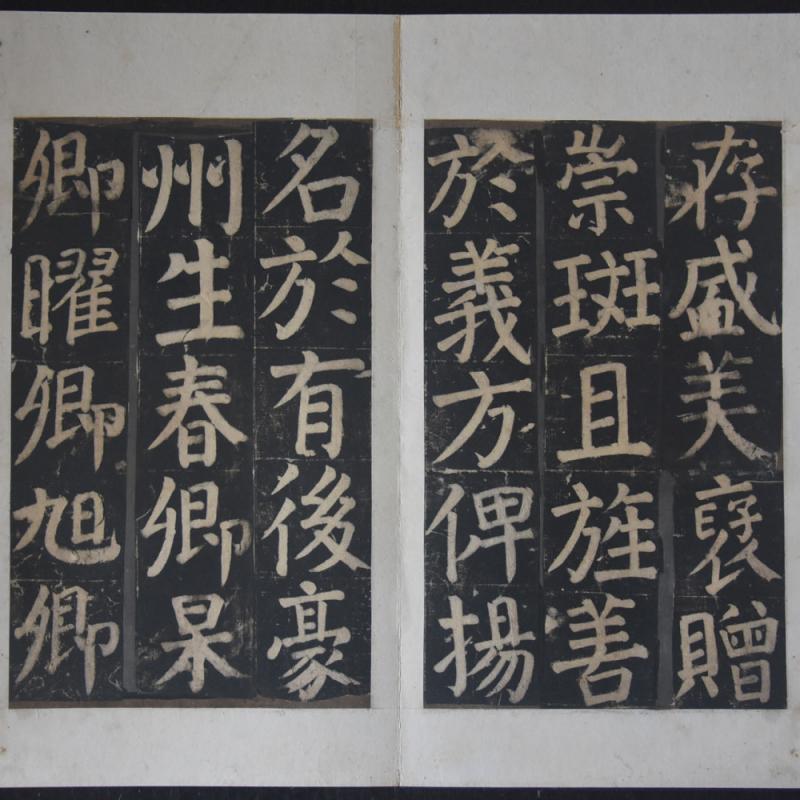 存盛美褎贈
崇班且旌善
於義方俾揚
名於有後豪
州生春卿杲
卿曜卿旭卿